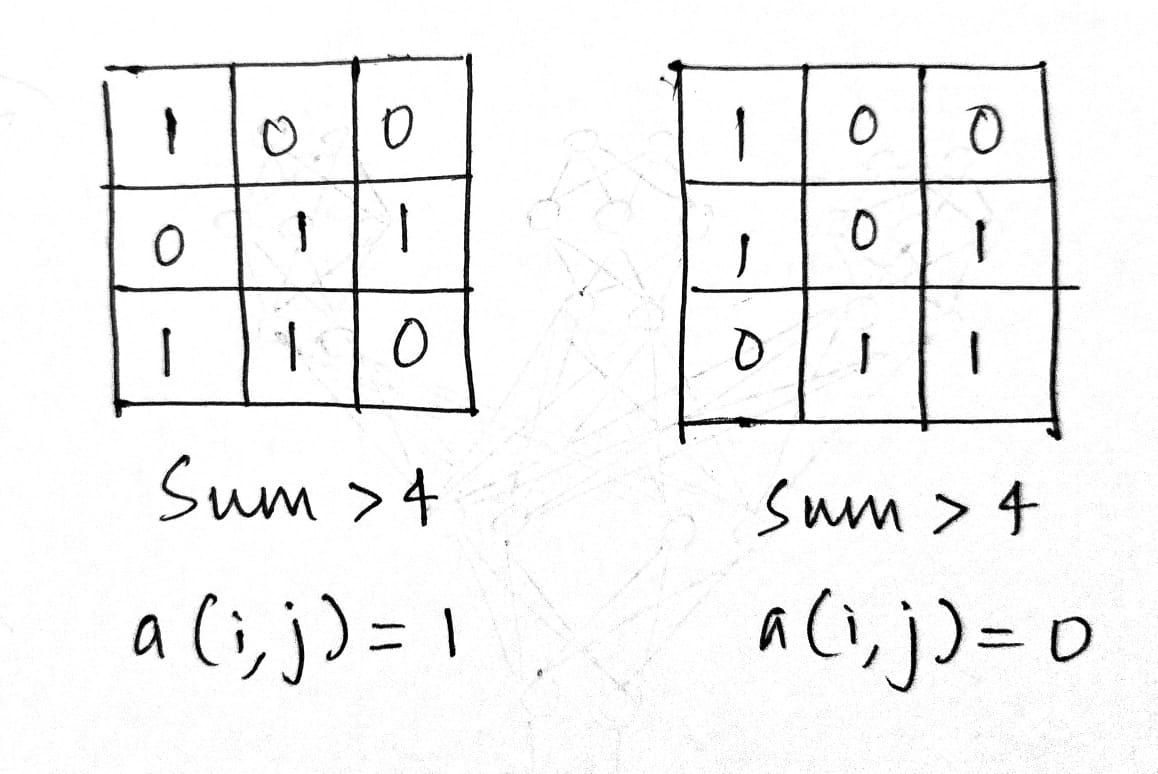 1 0 0
0 1 1
1 1 0
Sum > 4
a(i,j) = 1
1 0 0
1 0 1
0 1 1
Sum > 4
a(i,j) = 0